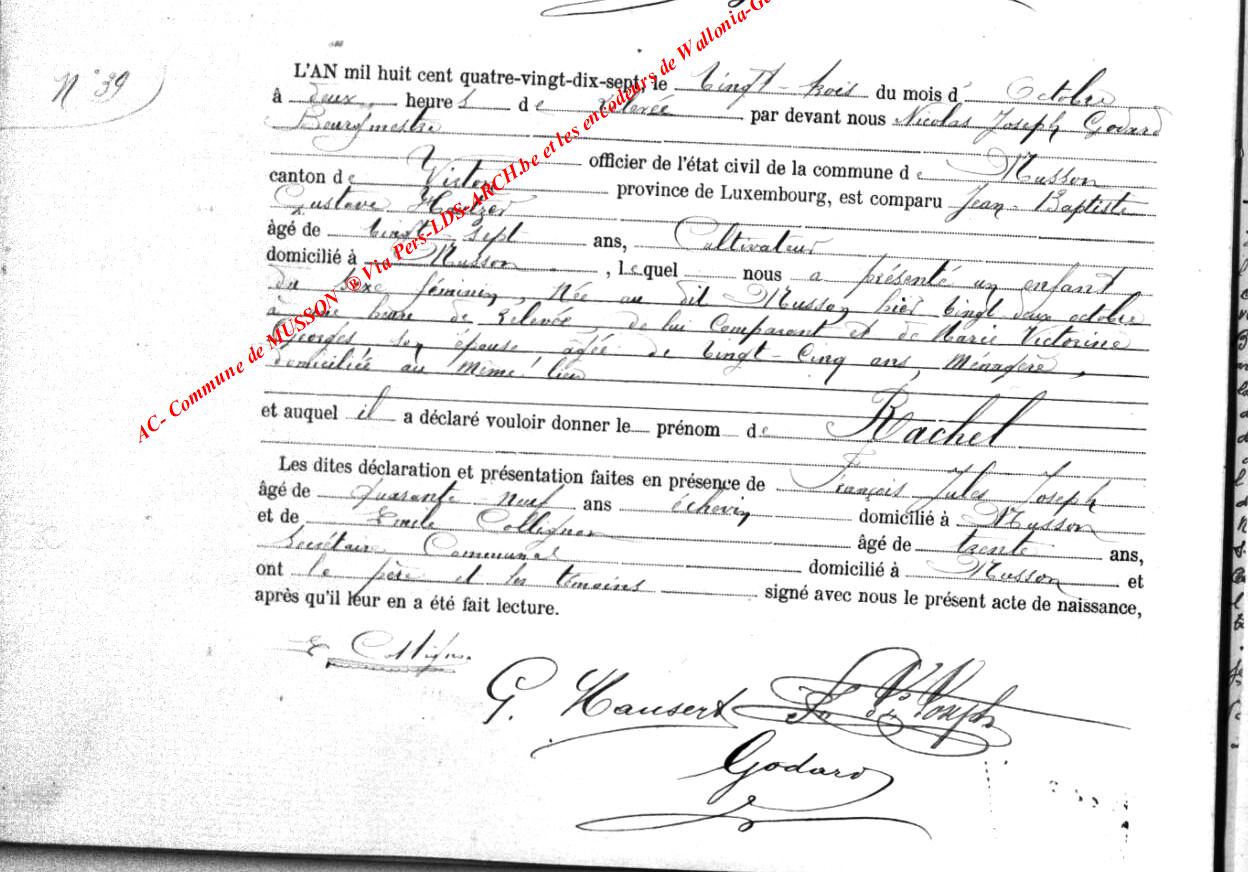 N° 39
L'AN mil huit cent quatre-vingt-dix-sept, le Vingt-trois du mois d' Octobre
à deux heures de relevée par devant nous Nicolas Joseph Godard
Bourgmestre
officier de l'état civil de la commune de Musson
canton de Virton province de Luxembourg, est comparu Jean-Baptiste
Gustave
âgé de Vingt-Sept ans, Cultivateur
domicilié à Musson, lequel nous a présenté un enfant
du sexe féminin, Née au dit Musson hier Vingt deux octobre
à une heure de relevée, de lui Comparant et de Marie Victorine
Georges, son épouse âgée de Vingt-Cinq ans, Ménagère,
domiciliée au même lieu
et auquel il a déclaré vouloir donner le prénom de Rachel
Les dites déclaration et présentation faites en présence de François Jules Joseph
âgé de quarante-neuf ans échevin domicilié à Musson
et de Emile Collignon âgé de trente ans,
Secrétaire Communal domicilié à Musson et
ont le père et les témoins signé avec nous le présent acte de naissance,
après qu'il leur en a été fait lecture.
E. Collignon
G. Joseph
Godard
AC- Commune de MUSSON ® Via Pers-LDS-ARCH.be et les encodeurs de Wallonia-Ge